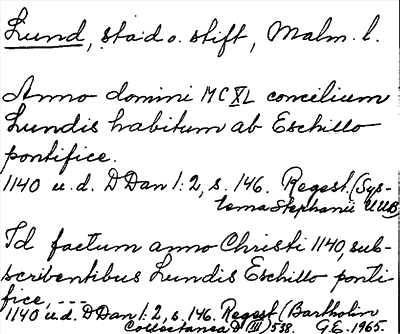 Lund, stad o. stift, Malm. l.
Anno domini MCXL concilium
Lundis habitum ab Eschillo
pontifice.
1140 u.d. DDan 1:2, s. 146. Regest (Sys-
tema Stephanii UUB
Id factum anno Christi 1140, sub-
scribentibus Lundis Eschillo ponti-
fice, ---
1140 u.d. DDan 1:2, s. 146. Regest (Bartholin
Collectanea D (III) 538. G.E. 1965.